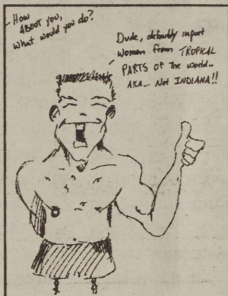 - How
ABOUT you,
what would you do?
Dude, definitely import
women from TROPICAL
PARTS of the world..
AKA... Not INDIANA!!